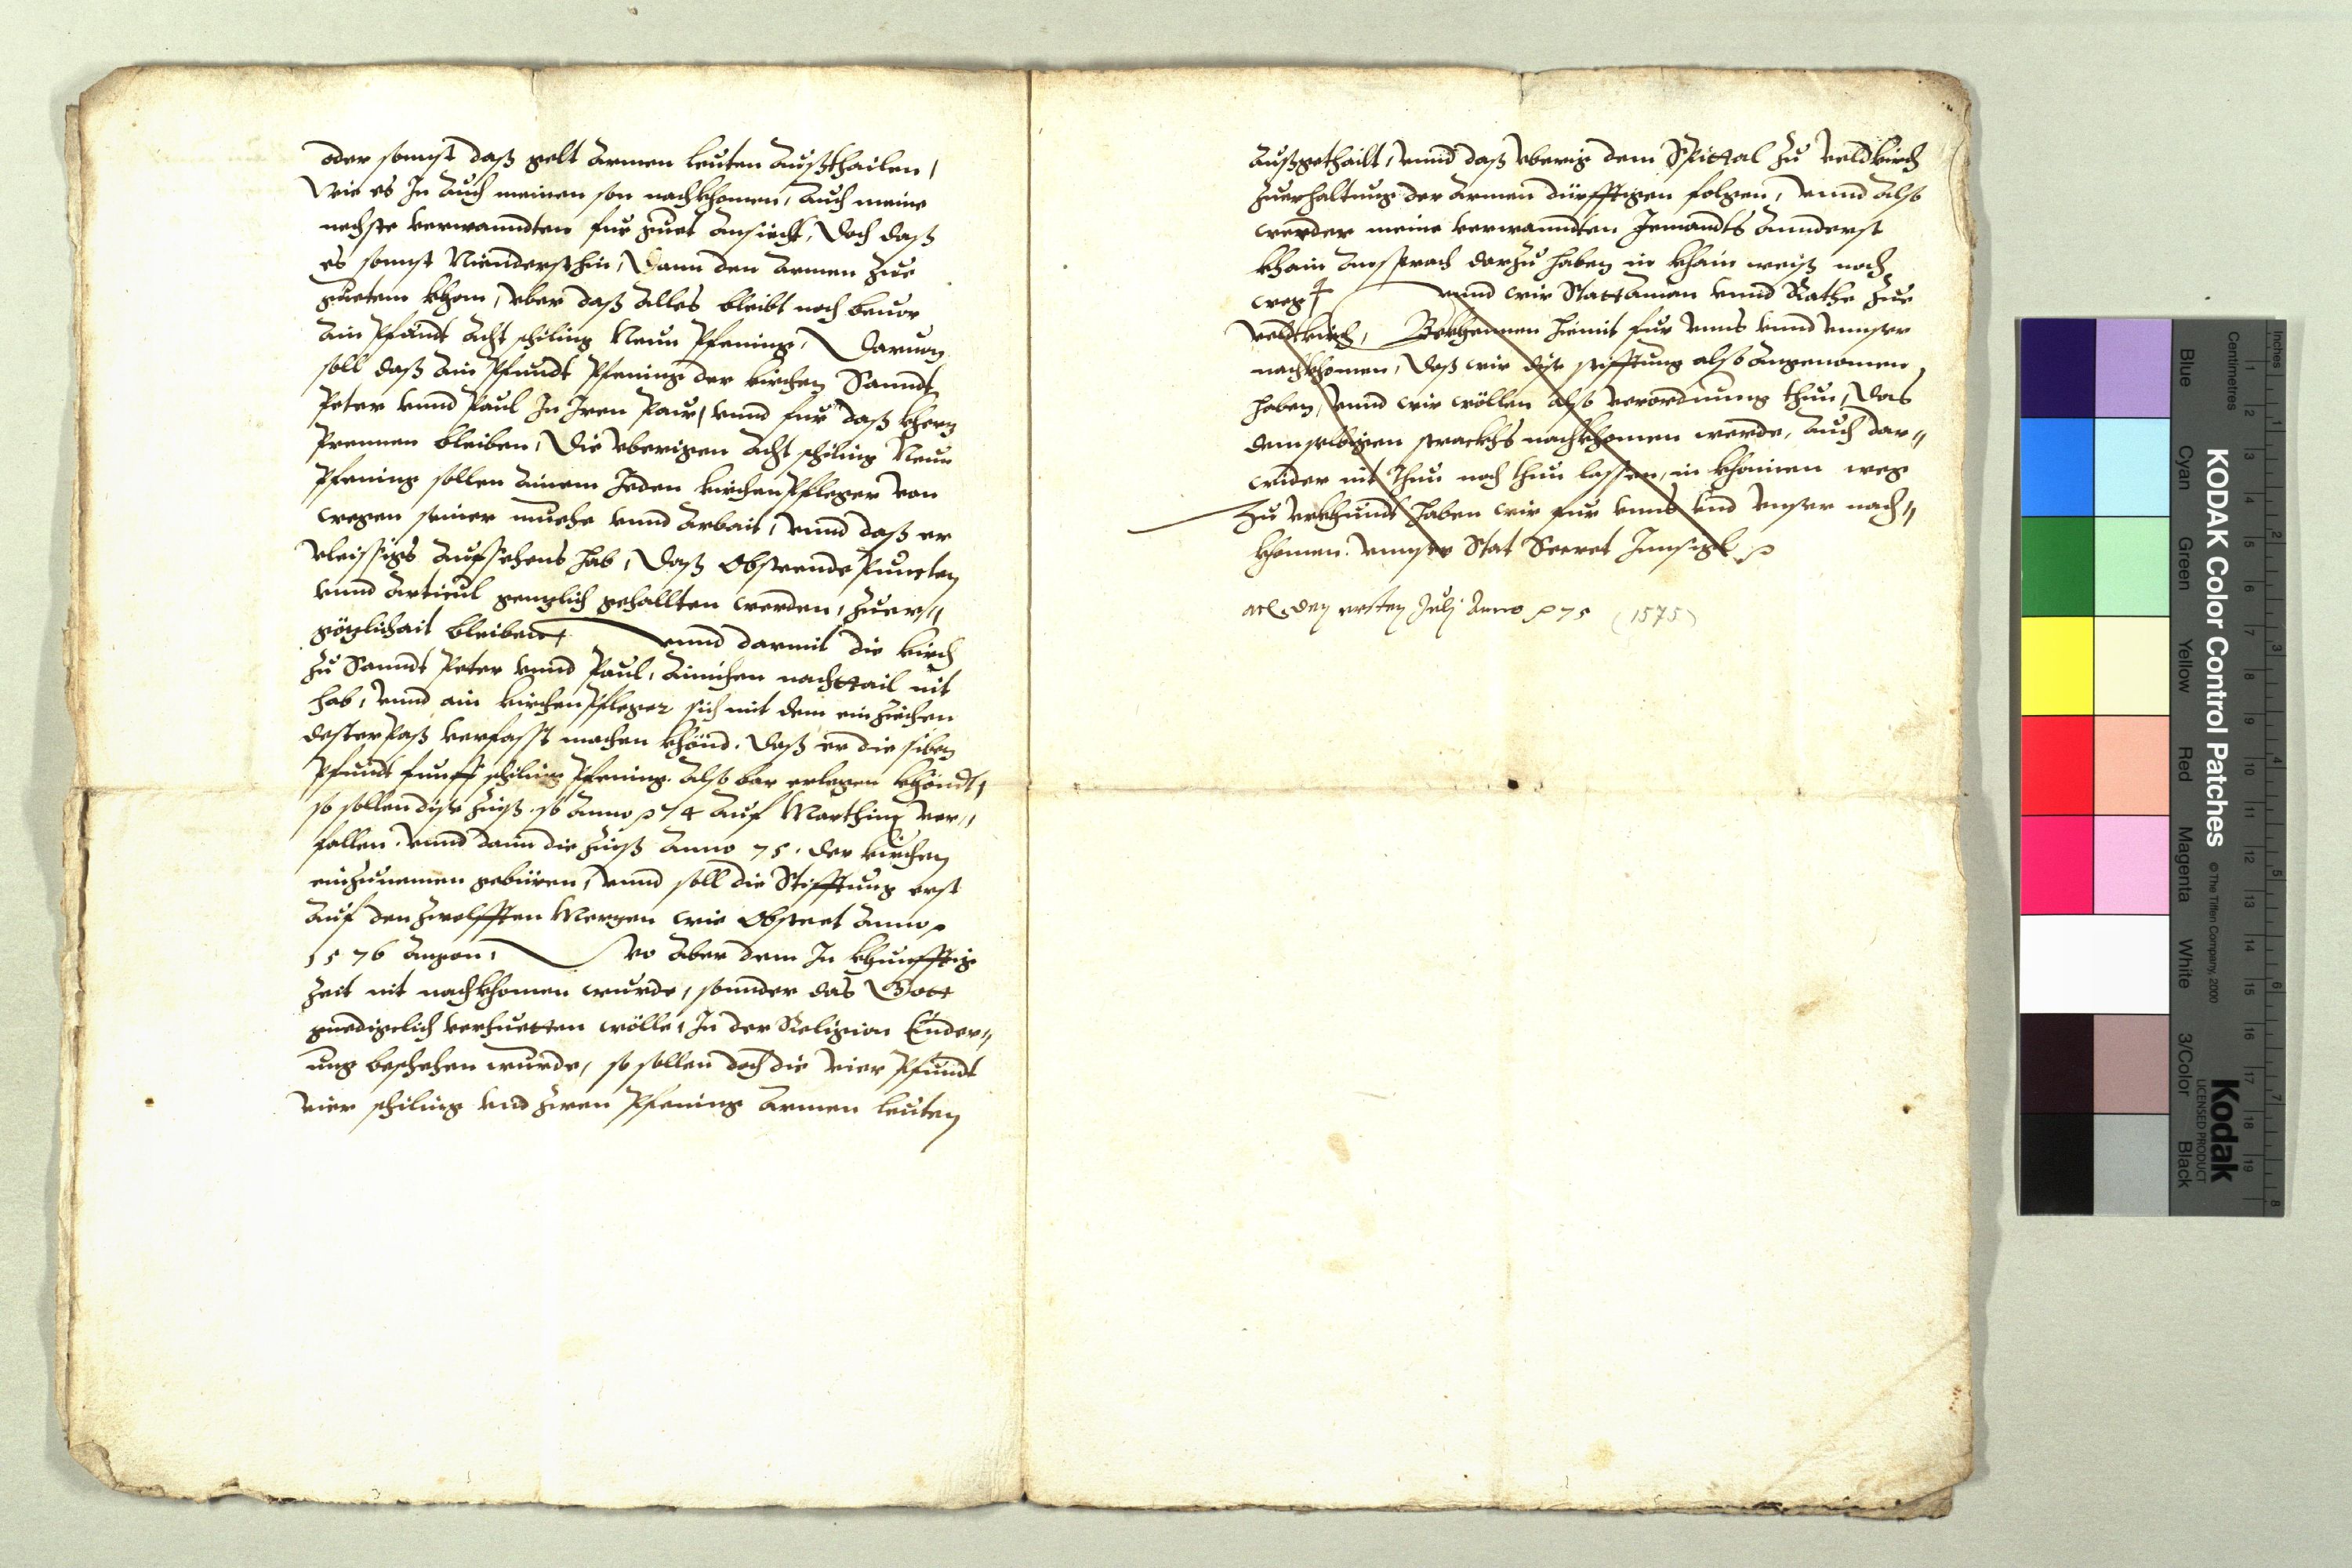 oder sonnst daß gelt Armen leuten Außthailen,
Wie es In Auch meinen son nachkhomen, Auch meine
nechste verwanndten fur guet Ansicht, Doch daß
es sonnst Niendersthin, Dann den Armen Zue
guetem khom, Vber daß Alles bleibt noch beuor
Ain Pfundt Acht schiling Neun Pfening, Daruon
soll daß Ain Pfundt Pfening der kirchen Sanndt
Peter vnnd Paul In Iren Paw, vnnd fur daß
Prennen bleiben, Die vberigen Acht schiling Neun
Pfening sollen Ainem Jeden kirchenPfleger von
wegen seiner muehe vnnd Arbait, vnnd daß er
vleissigs Aufsehens hab, Daß Obsteende Puncten
vnnd Articul genzlich gehallten werden, Zuer„
gözlichait bleiben, vnnd darmit die kirch
Zu Sanndt Peter vnnd Paul, Ainichen nachttail nit
hab, vnnd ain kirchenPfleger sich mit dem einziehen
desterPaß verfasst machen khönd. Daß er die siben
Pfundt funff schiling Pfening. Alß bar erlegen khöndt,
so sollen dise Zinß. so Anno 74 Auf Marthini ver„
fallen. vnnd dann die Zinß Anno 75. der kirchen
einzunemen gebüren, vnnd soll die Stifftung erst
Auf den Zwelfften Mertzen wie Obsteet Anno
1576 Angon, Wo Aber dem In khunfftig
Zeit nit nachkhomen wurde, sonnder das Gott
gnedigclich verhuetten wölle, In der Religion Ender„
ung beschehen wurde, so sollen doch die vier Pfundt
vier schiling vnd Zwen Pfening Armen leuten
Außgethailt, vnnd daß vberig dem Spittal Zu veldkirch
Zuerhaltung der Armen dürfftigen folgen, vnnd Also
weder meine verwanndten Jemandts Annderst
khain Ansprach darzu haben in khain weiß noch
weg vnnd wir Stattaman vnnd Rathe Zue
veldtkirch, Bekhennen hiemit fur vnns vnnd vnnser
nachkhomen, Daß wir dise stifftung also angenomen
haben, vnnd wir wöllen also verordnung thun, Das
demselbigen strackhs nachkhomen werde, Auch dar„
wider nit Thun noch thun lassen, in khainen weg
Zu vrkhundt haben wir fur vnns vnd vnnser nach„
khomen. vnnser Stat Secret Innsigl
act. den ersten Julj Anno 75 (1575)